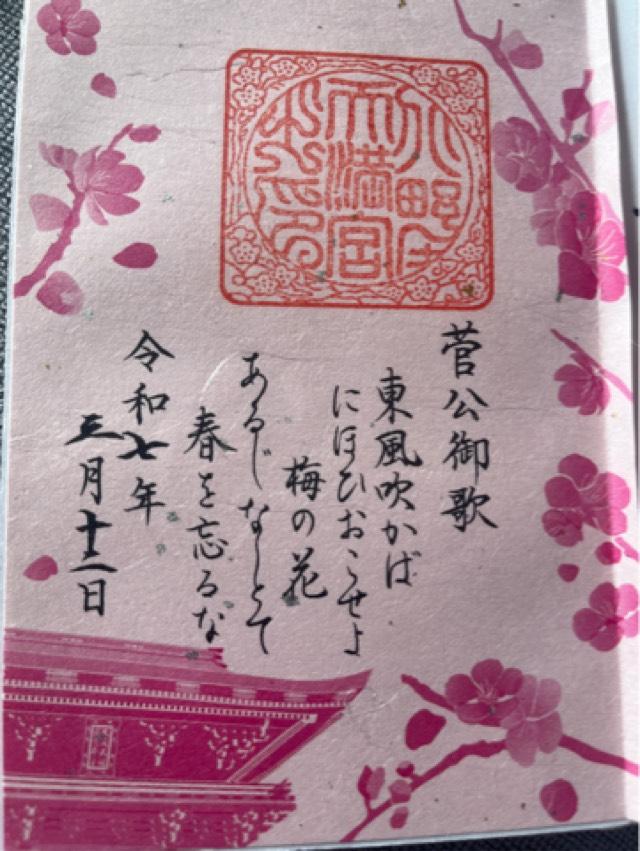 天満宮
菅公御歌
東風吹かば
にほひおこせよ
梅の花
あるじなしとて
春を忘るな
令和七年
三月十二日